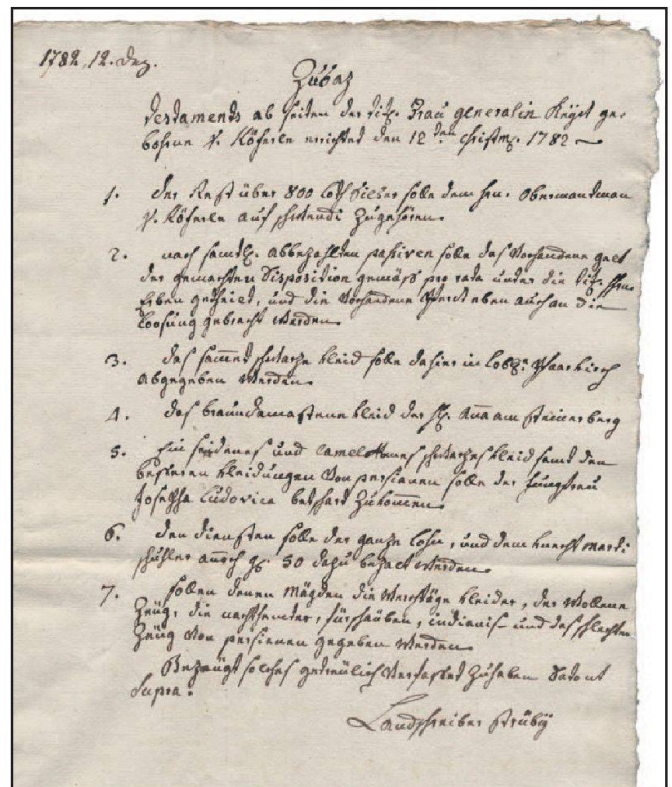 1782, 12. Dez.
Zusaz
Testaments ab seiten der tit. Frau generalin Reyst ge-
bohrne v. Köferle errichtet den 12ten Christm. 1782
1. der Rest über 800 loth Silber solle dem hrn. Obermandman
v. Köferle auf zugehören.
2. nach sämtl. abbezahlten pahsiven solle das Vorhandene gelt
der gemachten Disposition gemäss pro rata under die tit. hrn.
Erben getheilt, und die Vorhandene Pferdt eben auch an die
loosung gebracht werden.
3. das sammet schwarze kleid solle dahier in lobl. Pfaarkirch
abgegeben werden.
4. das braundamastene kleid der St. Anna am Steinerberg
5. Ein seidenes und Camelottenes schwarzes kleid samt den
besseren kleidungen Von persianen solle der Jungfrau
Josepha Ludovica betschart Zukommen.
6. den diensten solle der ganze lohn, und dem knecht marti
schuhler annoch gl. 50 dazu bezalt werden.
7. sollen denen Mägden die Werchtäge kleider, der Wollene
Zeüg, die nachthemter, fürschäuben, indianis- und das schlechten
Zeüg Von persianen gegeben werden.
Bezeügt solches getreülich Verfasset Zu haben Dato ut
Supra.
Landschreiber Strübÿ